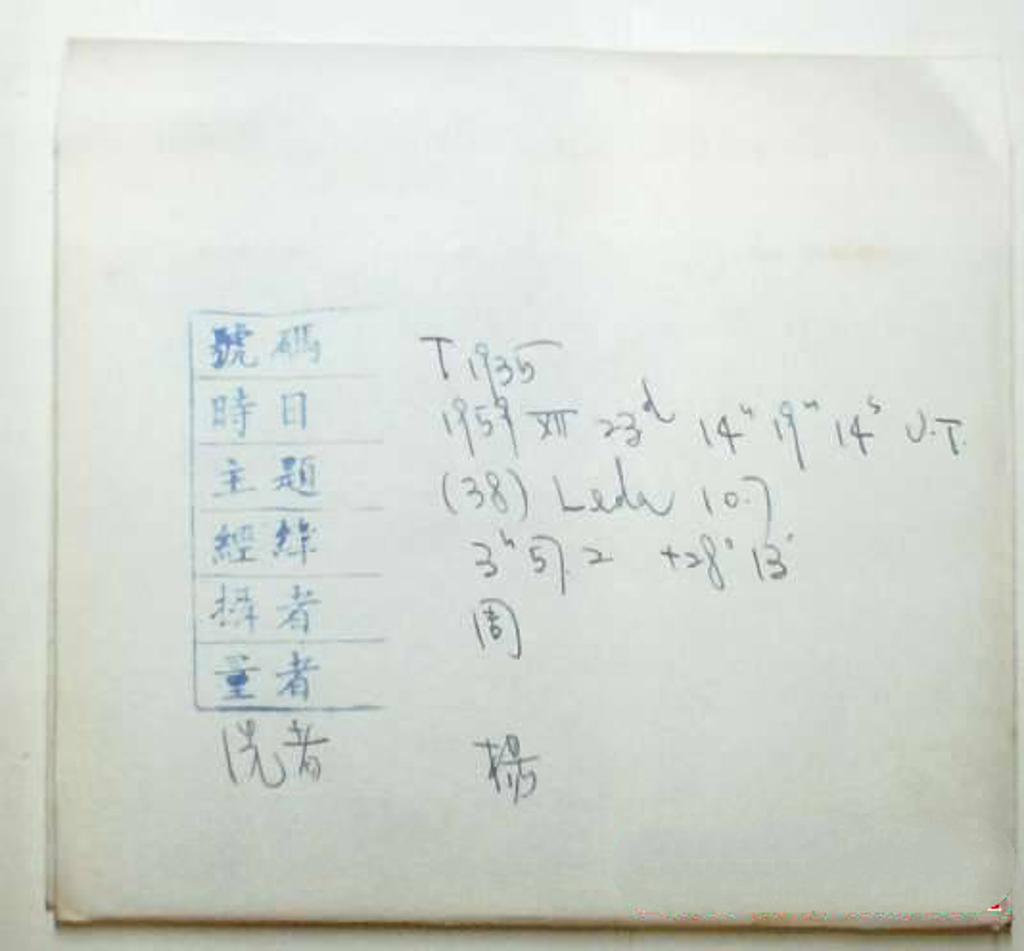 號碼 T 1935
時日 1959 XII 23d 14h 19m 14s U.T.
主題 (38) Leda 10.7
經緯 3h 57.2 +28° 13'
攝者 周
量者
洗者 楊